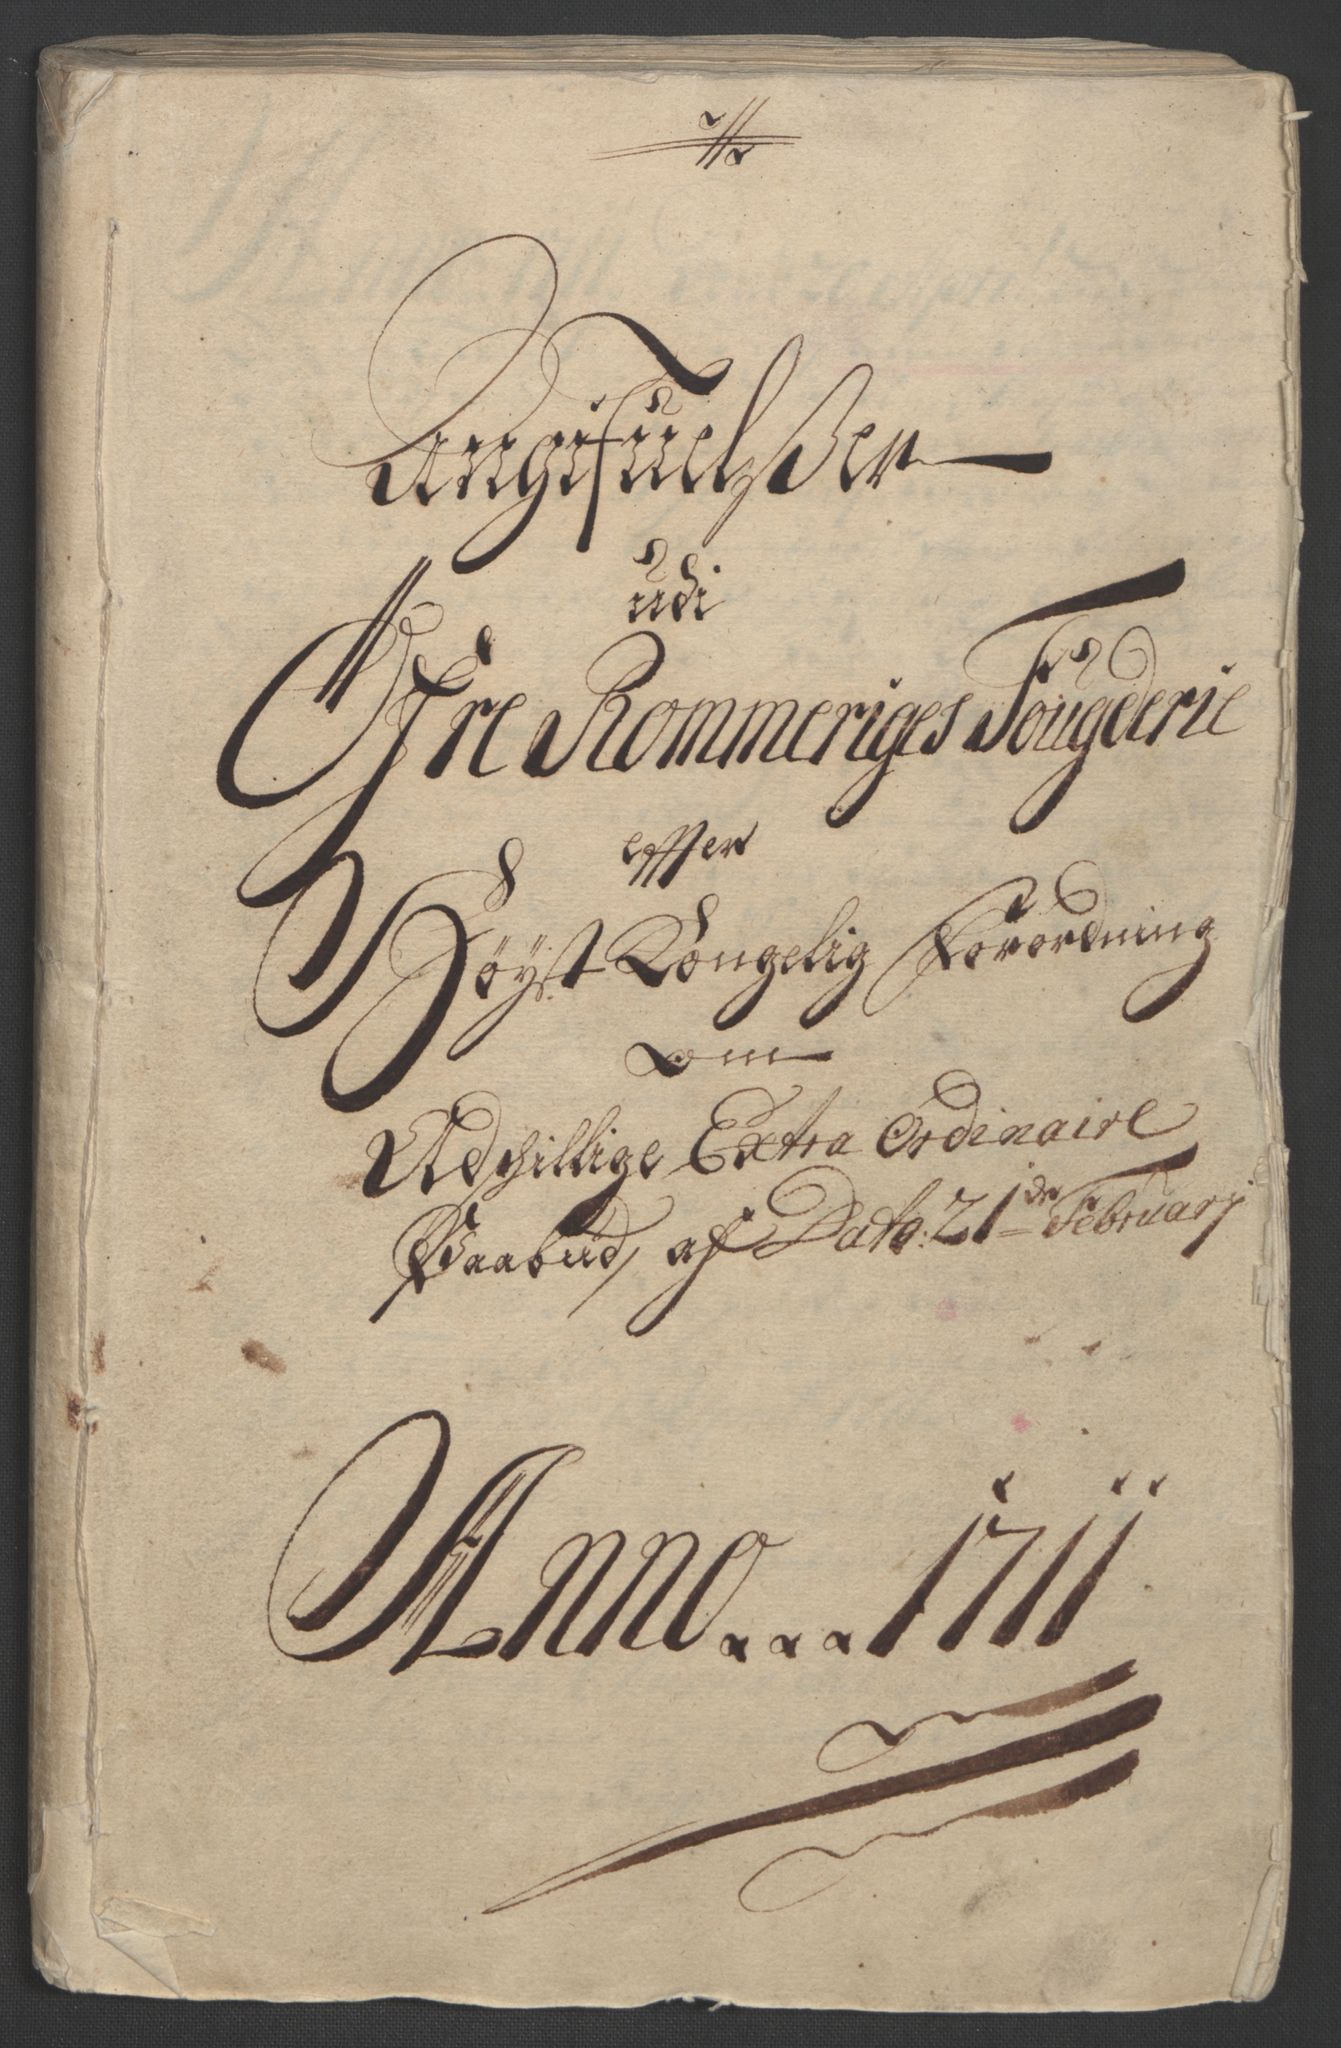 Angifuelsßer
udi
Öfre Rommeriges Fougderie
effter
Höyst Kongelig Forordning
om
Adschillige Extra Ordinaire
Paabud, af Dato: 21de February
Anno ... 1711